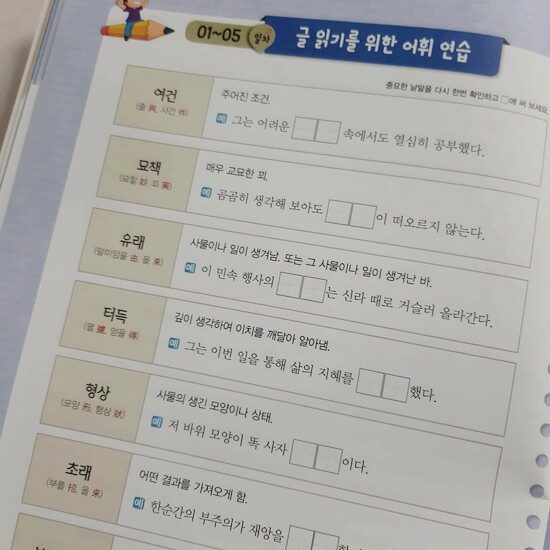 01~05 일차 글 읽기를 위한 어휘 연습
중요한 낱말을 다시 한번 확인하고 □에 써 보세요.
여건
(줄 與, 사건 件)
주어진 조건.
예 그는 어려운 □□ 속에서도 열심히 공부했다.
묘책
(묘할 妙, 꾀 策)
매우 교묘한 꾀.
예 곰곰히 생각해 보아도 □□이 떠오르지 않는다.
유래
(말미암을 由, 올 來)
사물이나 일이 생겨남. 또는 그 사물이나 일이 생겨난 바.
예 이 민속 행사의 □□는 신라 때로 거슬러 올라간다.
터득
(펼 攄, 얻을 得)
깊이 생각하여 이치를 깨달아 알아냄.
예 그는 이번 일을 통해 삶의 지혜를 □□했다.
형상
(모양 形, 형상 狀)
사물의 생긴 모양이나 상태.
예 저 바위 모양이 똑 사자 □□이다.
초래
(부를 招, 올 來)
어떤 결과를 가져오게 함.
예 한순간의 부주의가 재앙을 □□